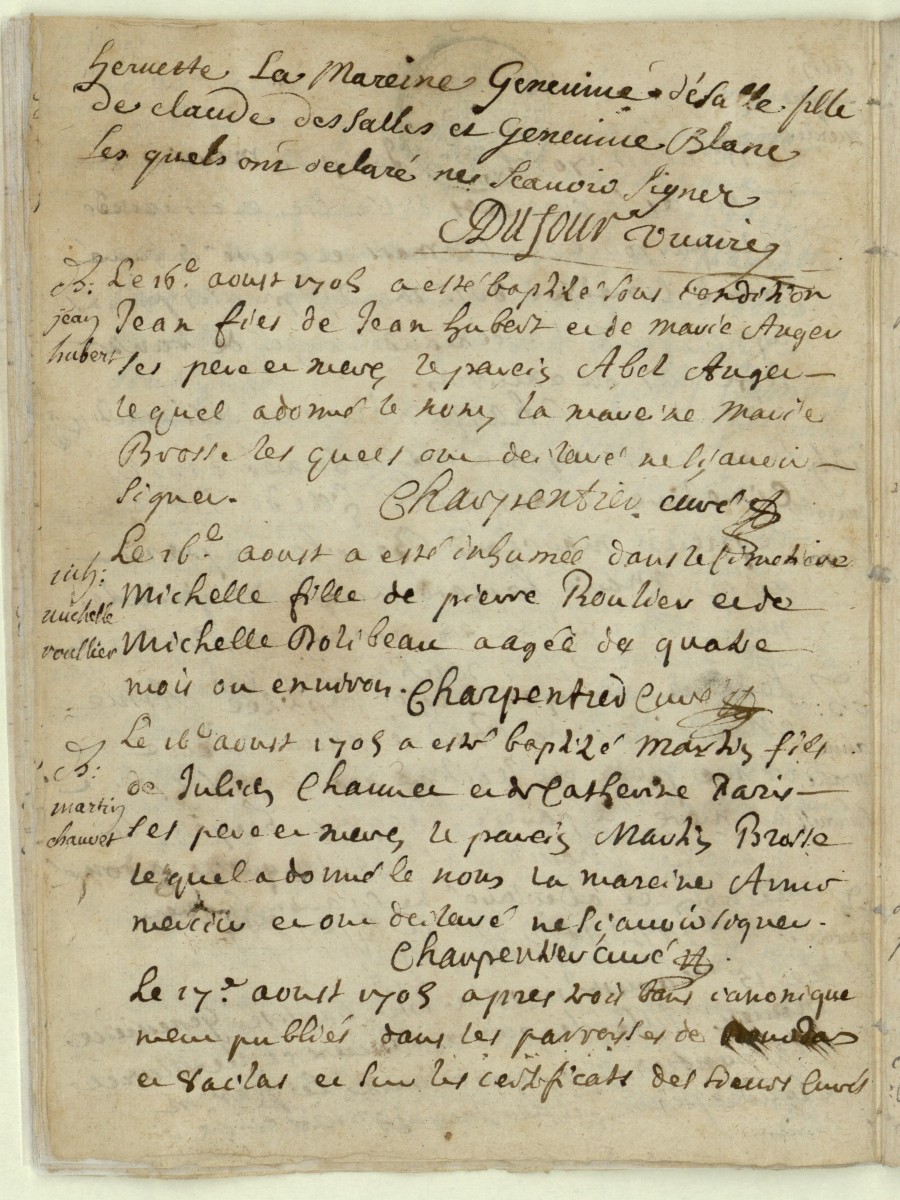 hervette La Mareine Genevieve désalle fille
de claude dessalles et Genevieve Blanc
Les quels ont declaré ne scavoir signer
Dufour vicaire
B:
jean
hubert
Le 16e aoust 1705 a esté baptizé sous condition
Jean fies de Jean hubert et de marie Auger
ses pere et mere, le parein Abel Auger
lequel a donné le nom, la mareine marie
Brosse les quels ont declaré ne sçavoir
signer. Charpentier curé
inh:
michelle
roullier
Le 16e aoust a esté inhumée dans le cimetiere
Michelle fille de pierre Roulier et de
Michelle Bolibeau aagée de quatre
mois ou environ. Charpentier Curé
B:
martin
chauvet
Le 16e aoust 1705 a esté baptizé martin fils
de Julien Chauvet et de Catherine Paris
ses pere et mere, le parein Martin Brosse
lequel a donné le nom la mareine Anne
mercier et ont declaré ne sçavoir signer.
Charpentier curé
Le 17e aoust 1705 apres trois bans canonique
ment publiés dans les parroisses de
et saclas et sur les certificats des sieurs Curés